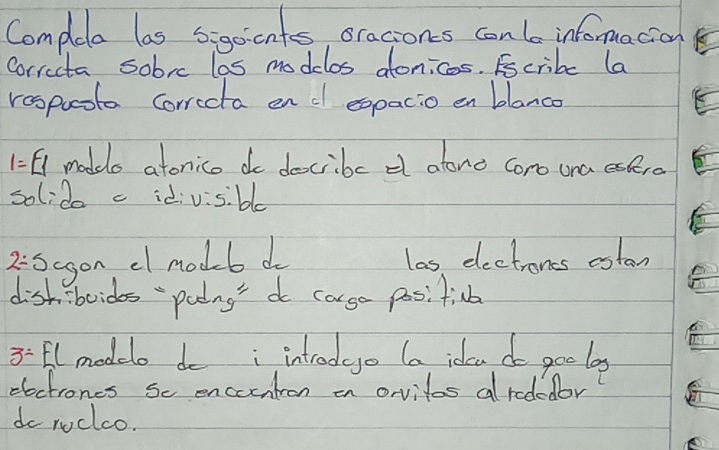 Completa las sigoientes oraciones con la informacion
Correcta sobre los modelos atomicos. Escribe la
respuesta correcta en el espacio en blanco
1= El modelo atonico de describe el atomo como una esfera
solida e idivisible
2= Segon el modelo de las electrones estan
distribuidos "pudng" de carga positiva
3= El modelo de i introdujo la idea de que los
electrones se encuentran en orvitas al rededor
de nucleo.